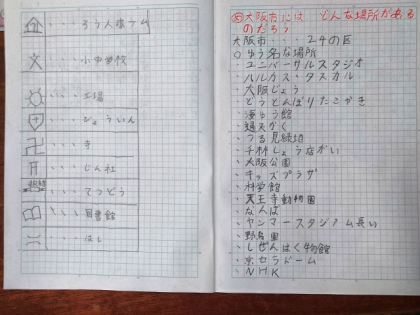 老人ホーム
文・・・小中学校
・・・工場
・・・びょういん
卍・・・寺
・・・じん社
・・・てつどう
・・・図書館
・・・はし
大阪市には どんな場所がある
のだろう
大阪市・・・24の区
○ゆう名な場所
・ユニバーサルスタジオ
・ハルカス・タスカル
・大阪じょう
・どうとんぼりたこやき
・海ゆう館
・通天かく
・つる見緑地
・千林しょう店がい
・大阪公園
・キッズプラザ
・科学館
・天王寺動物園
・なんば
・ヤンマースタジアム長い
・野鳥園
・しぜんはく物館
・京セラドーム
・NHK